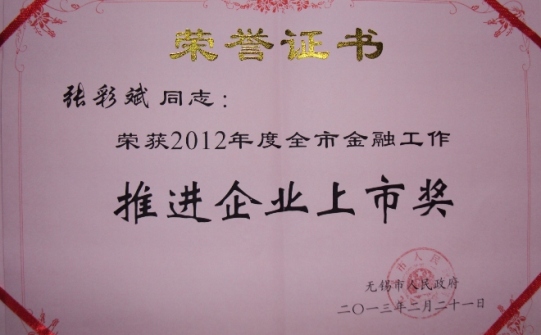 荣誉证书
张彩斌同志：
荣获2012年度全市金融工作
推进企业上市奖
无锡市人民政府
二〇一三年二月二十一日